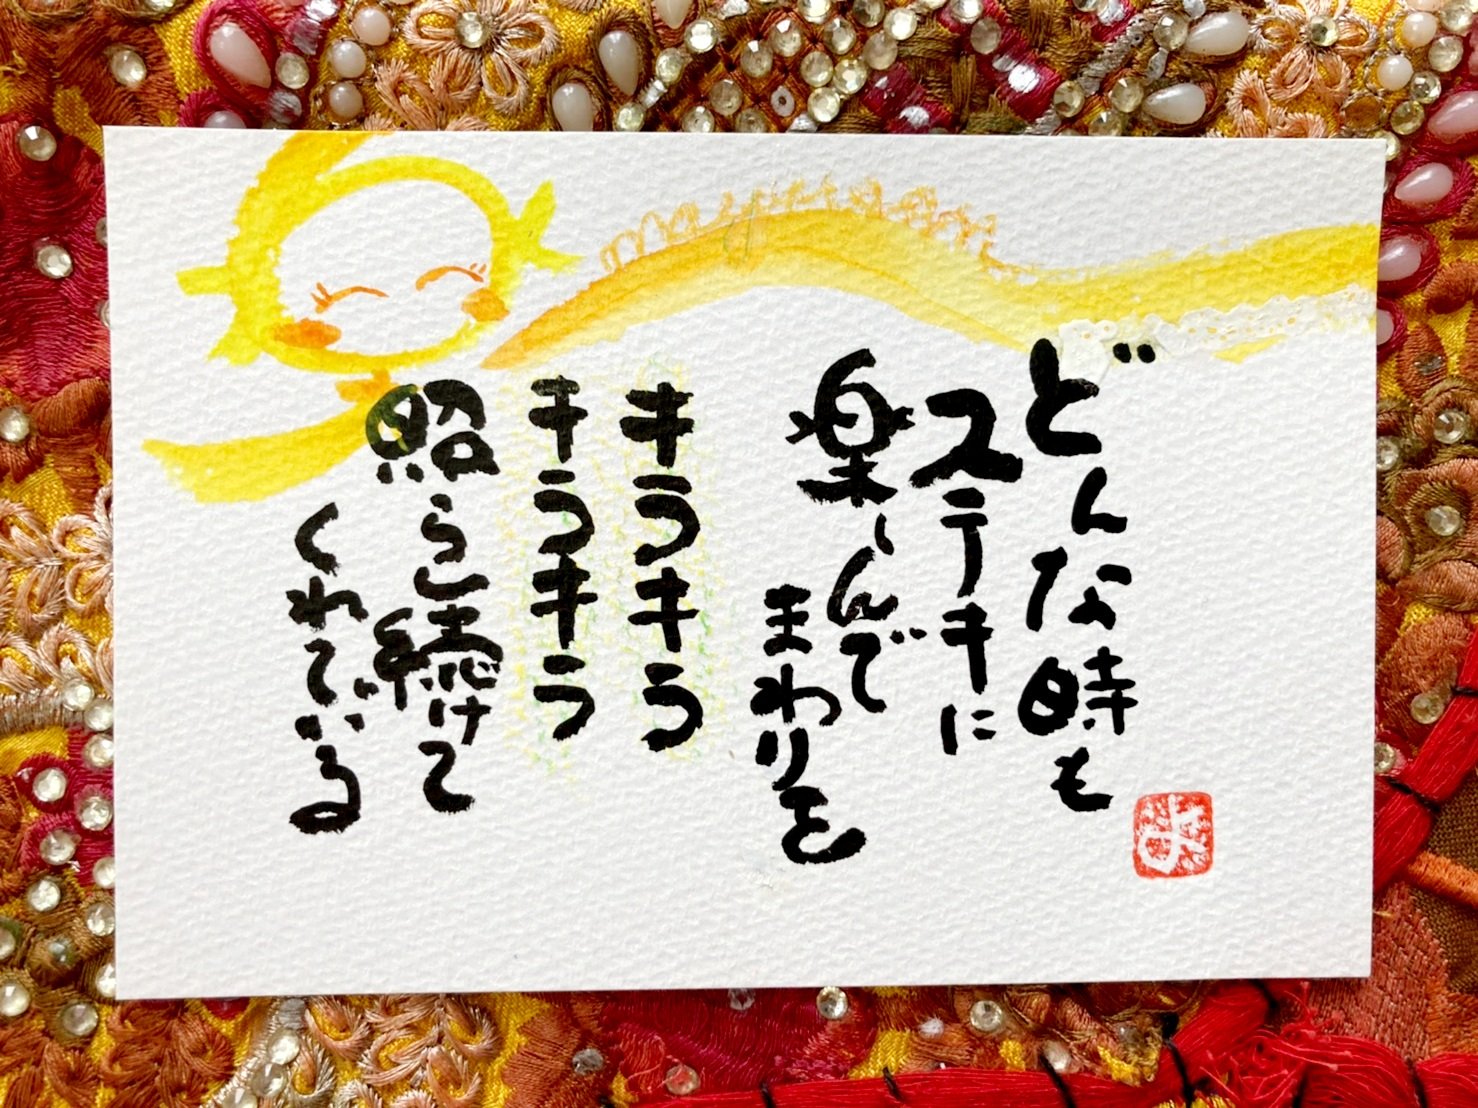 どんな時も
ステキに
楽しんで
まわりを
キラキラ
キラキラ
照らし続けて
くれている
よ